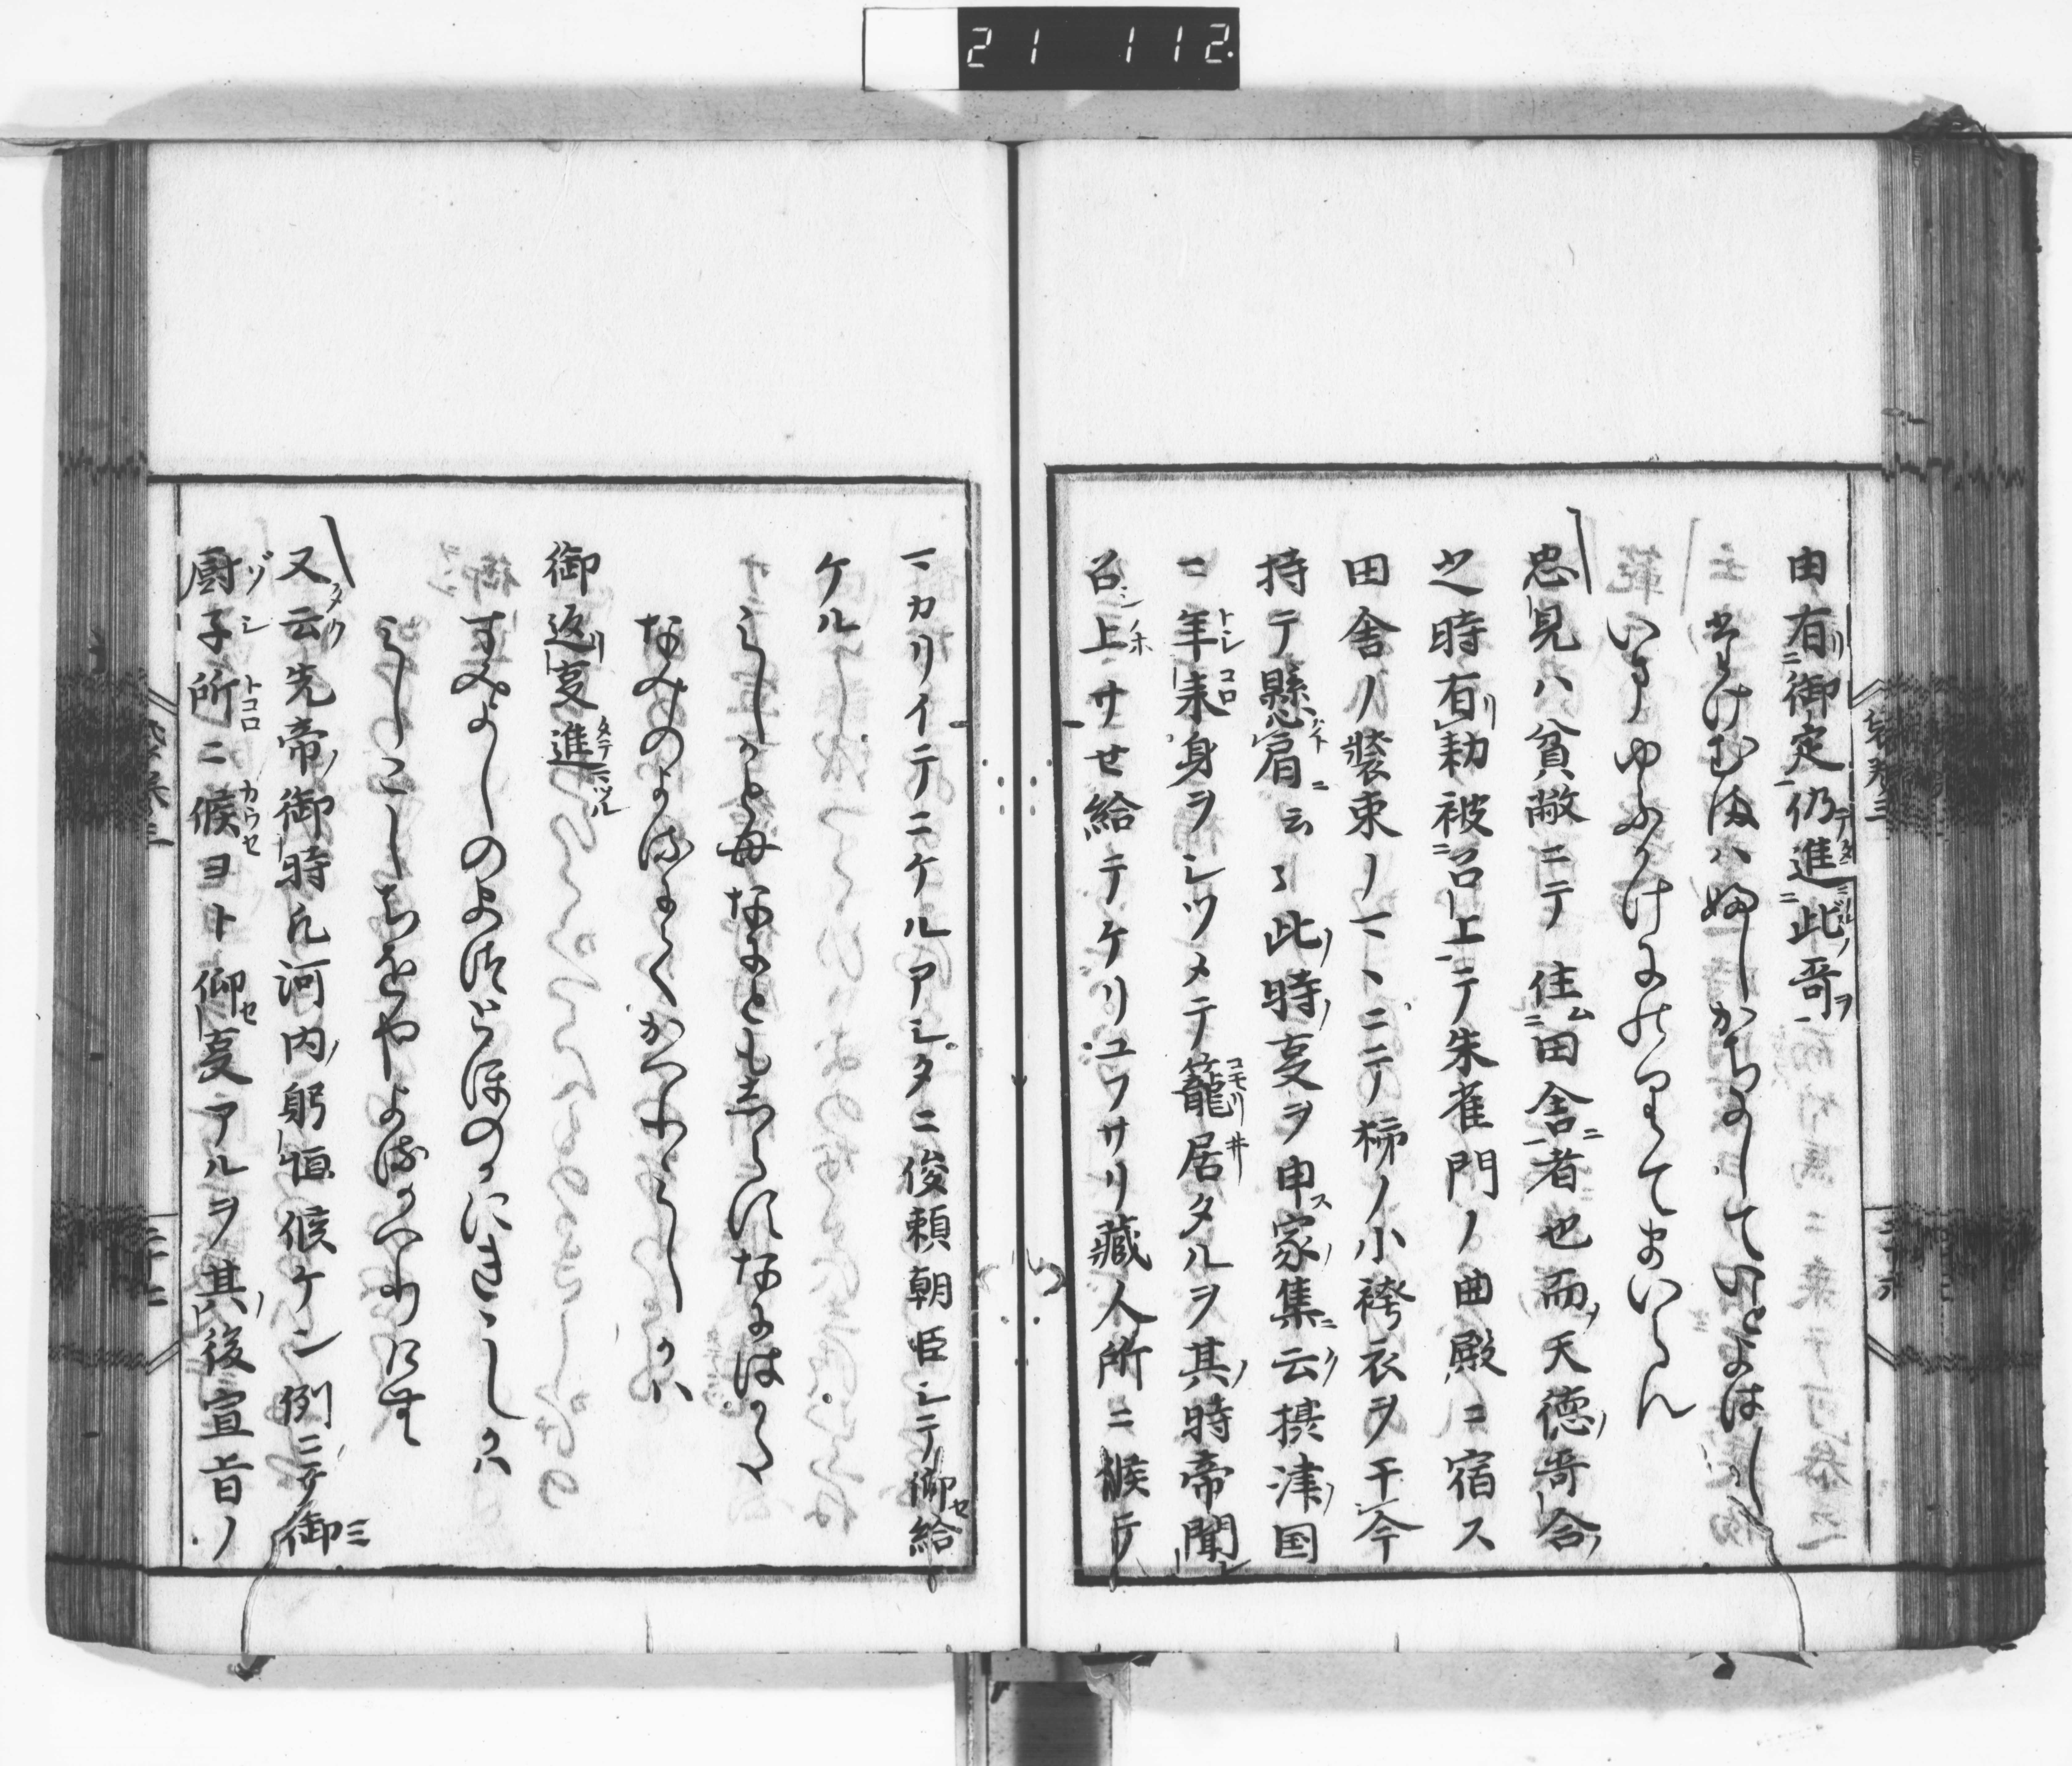 由有御定仍進此哥
たけむまハふしかちにしていとよはし
いまゆふかけにのりてまいらん
忠見ハ貧敞ニテ住田舎者也而天徳哥合
之時有勅被召上テ朱雀門ノ曲殿ニ宿ス
田舎ノ装束ノマヽニテ柿ノ小袴衣ヲ干今
持テ懸肩云々此時叓ヲ申家集云摂津国
ニ年来身ヲシツメテ籠居タルヲ其時帝聞
召上サセ給テケリユフサリ蔵人所ニ候テ
マカリイテニケルアシタニ俊頼朝臣シテ仰給
ケル
みしかとも なにともしらすなにはかた
なみのよるにてかへりにしかハ
御返叓進
すみよしのまつとほのかにきゝしかハ
みちこししほやよるかへりけむ
又云先帝御時凡河内躬恒候ケン例ニテ御
厨子所ニ候ヨト仰叓アルヲ其後宣旨ノ
21 112